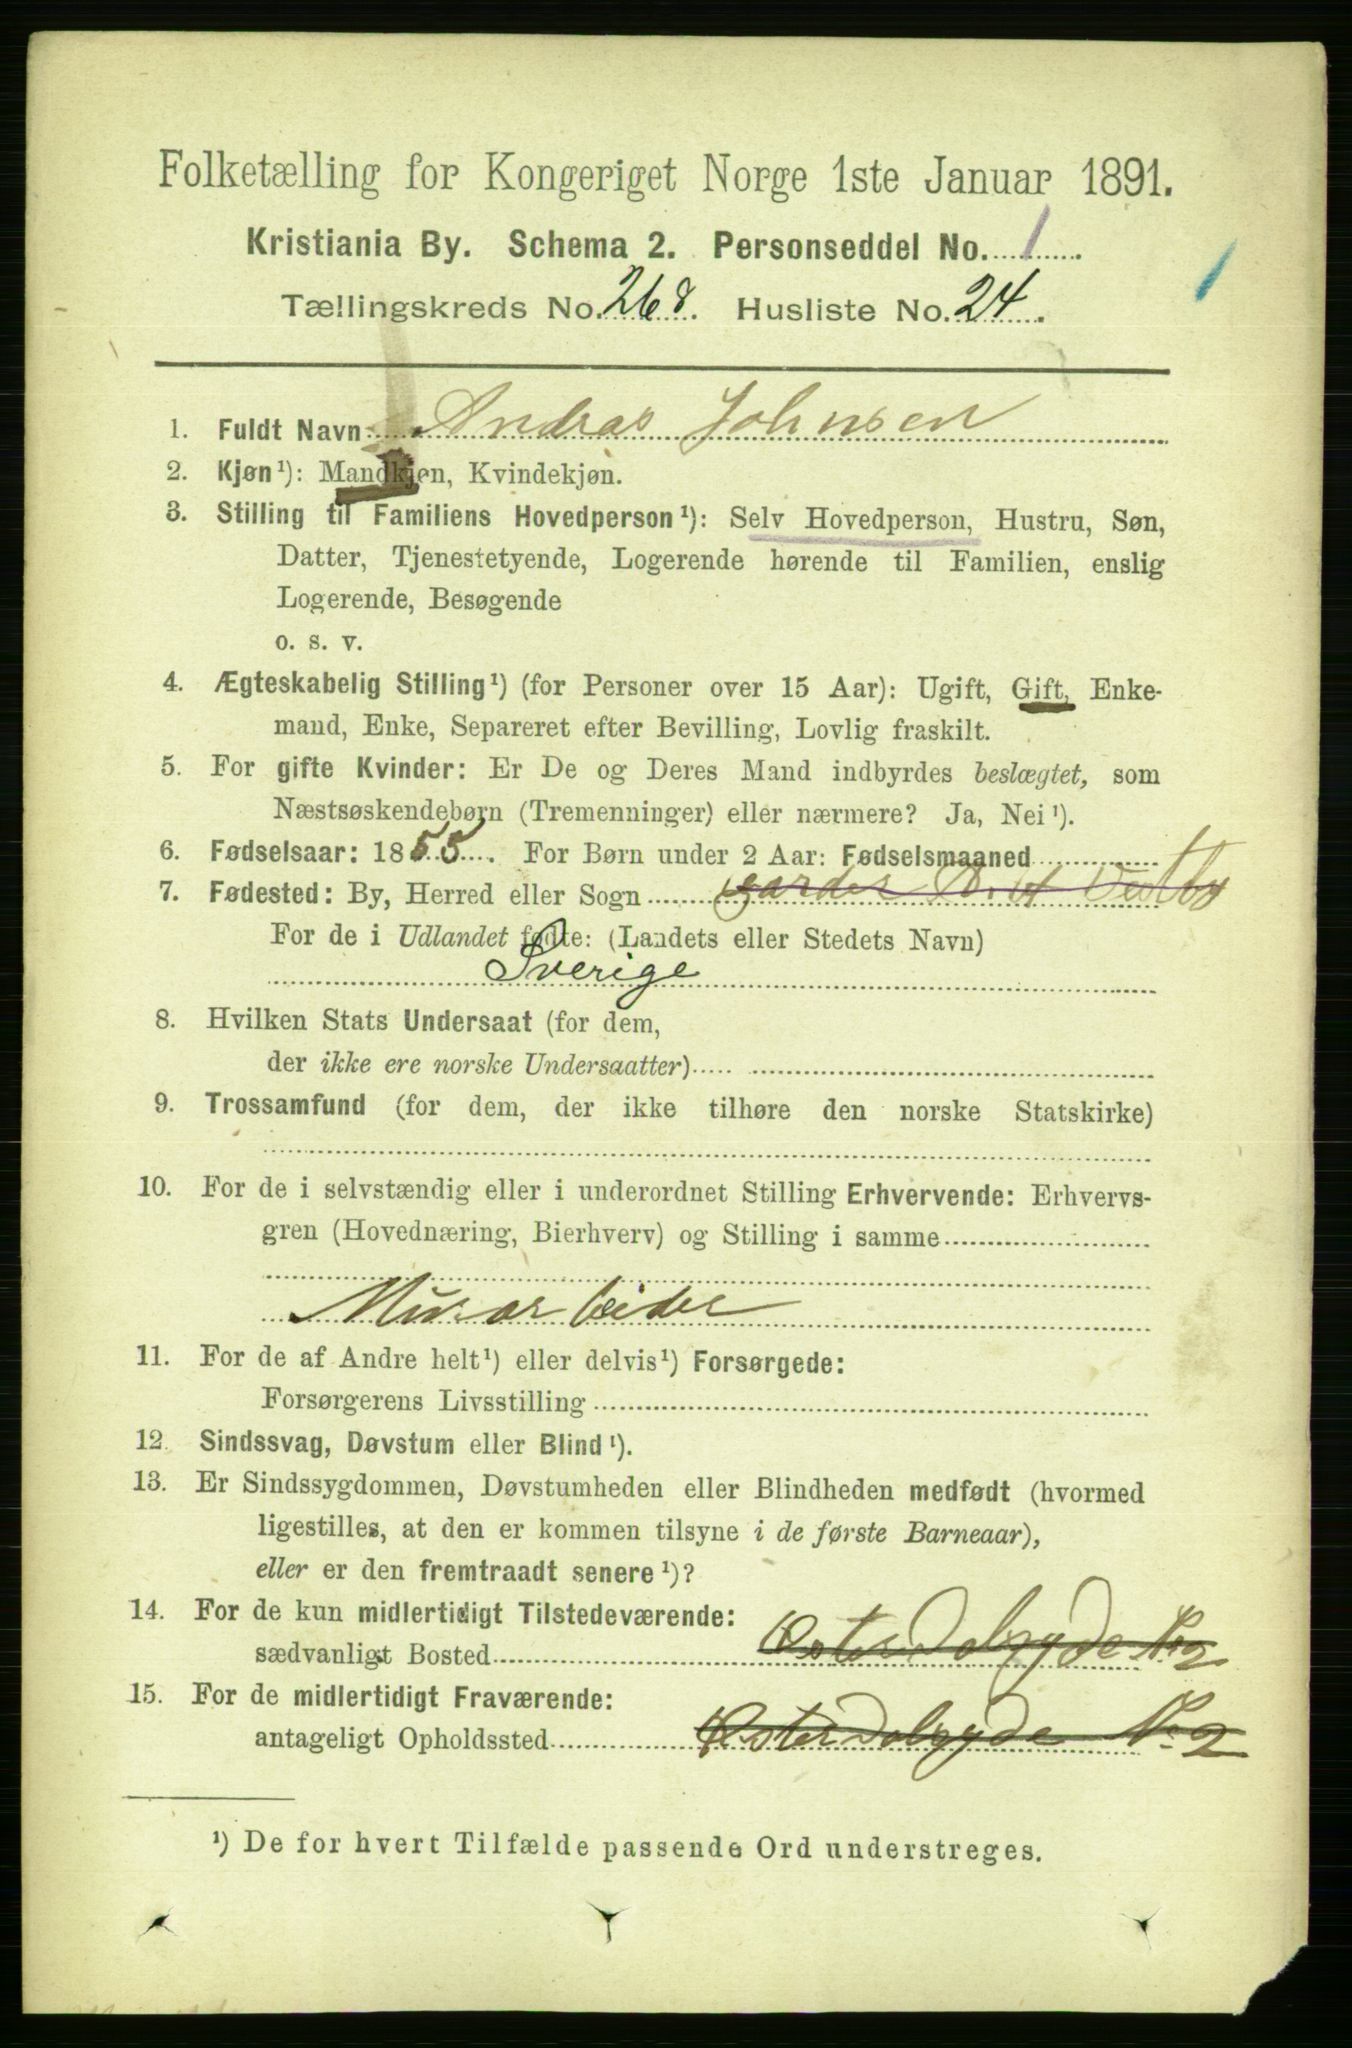 Folketælling for Kongeriget Norge 1ste Januar 1891.
Kristiania By. Schema 2. Personseddel No. 1
1
Tællingskreds No. 268. Husliste No. 24.
1. Fuldt Navn Andras Johnsen
2. Kjøn¹): Mandkjøn, Kvindekjøn.
3. Stilling til Familiens Hovedperson¹): Selv Hovedperson, Hustru, Søn,
Datter, Tjenestetyende, Logerende hørende til Familien, enslig
Logerende, Besøgende
o. s. v.
4. Ægteskabelig Stilling¹) (for Personer over 15 Aar): Ugift, Gift, Enke-
mand, Enke, Separeret efter Bevilling, Lovlig fraskilt.
5. For gifte Kvinder: Er De og Deres Mand indbyrdes beslægtet, som
Næstsøskendebørn (Tremenninger) eller nærmere? Ja, Nei¹).
6. Fødselsaar: 1855. For Børn under 2 Aar: Fødselsmaaned
7. Fødested: By, Herred eller Sogn Vestby
For de i Udlandet fødte: (Landets eller Stedets Navn)
Sverige
8. Hvilken Stats Undersaat (for dem,
der ikke ere norske Undersaatter)
9. Trossamfund (for dem, der ikke tilhøre den norske Statskirke)
10. For de i selvstændig eller i underordnet Stilling Erhvervende: Erhvervs-
gren (Hovednæring, Bierhverv) og Stilling i samme
Murarbeider
11. For de af Andre helt¹) eller delvis¹) Forsørgede:
Forsørgerens Livsstilling
12. Sindssvag, Døvstum eller Blind¹).
13. Er Sindssygdommen, Døvstumheden eller Blindheden medfødt (hvormed
ligestilles, at den er kommen tilsyne i de første Barneaar),
eller er den fremtraadt senere¹)?
14. For de kun midlertidigt Tilstedeværende:
sædvanligt Bosted No 2
15. For de midlertidigt Fraværende:
antageligt Opholdssted No 2
¹) De for hvert Tilfælde passende Ord understreges.